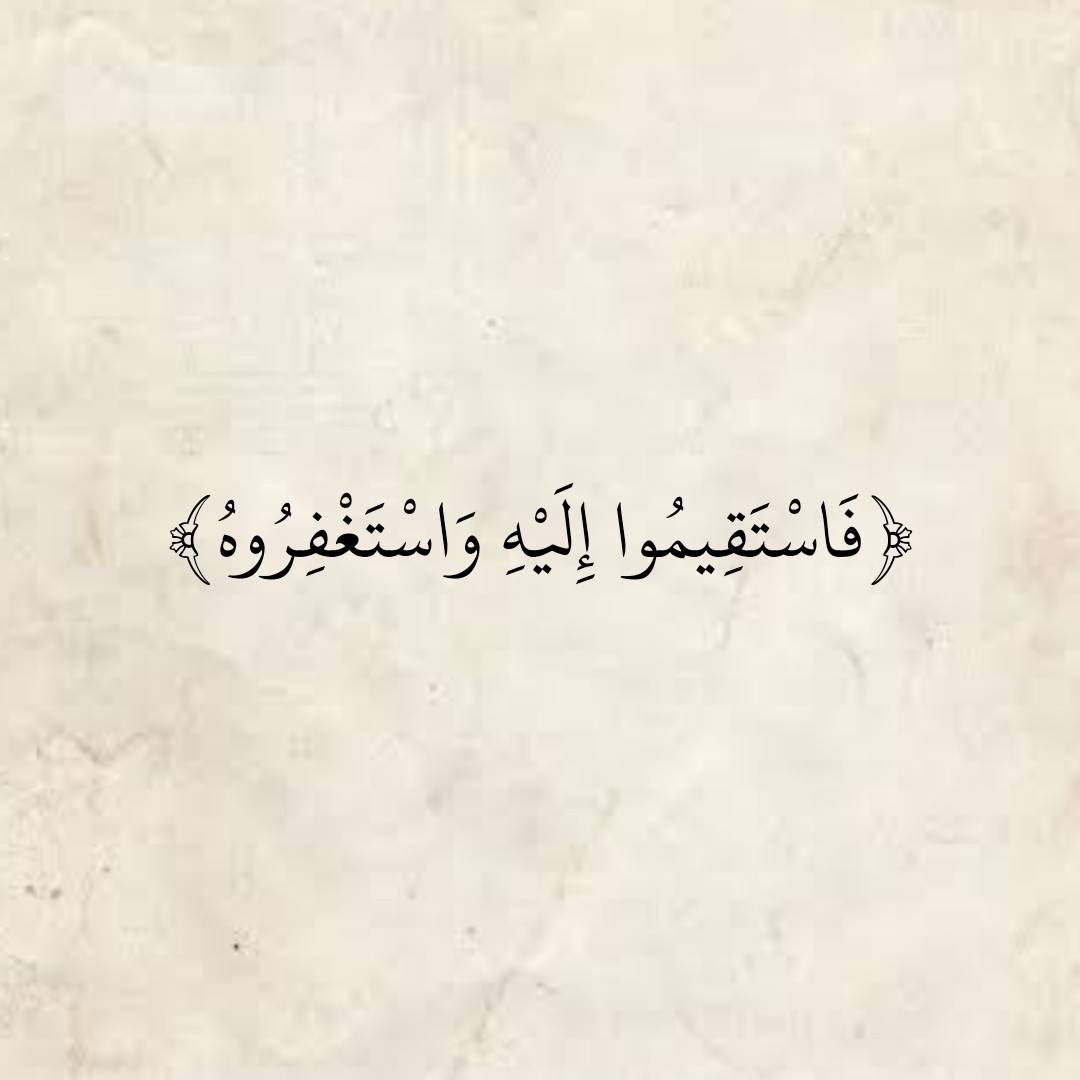 ﴿فَاسْتَقِيمُوا إِلَيْهِ وَاسْتَغْفِرُوهُ﴾